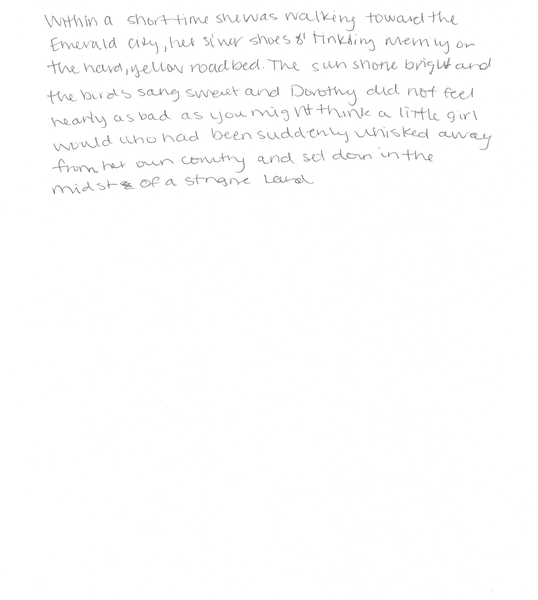 Within a short time she was walking toward the
Emerald City, her silver shoes tinkling merrily on
the hard, yellow roadbed. The sun shone bright and
the birds sang sweet and Dorothy did not feel
nearly as bad as you might think a little girl
would who had been suddenly whisked away
from her own country and set down in the
midst of a strange land